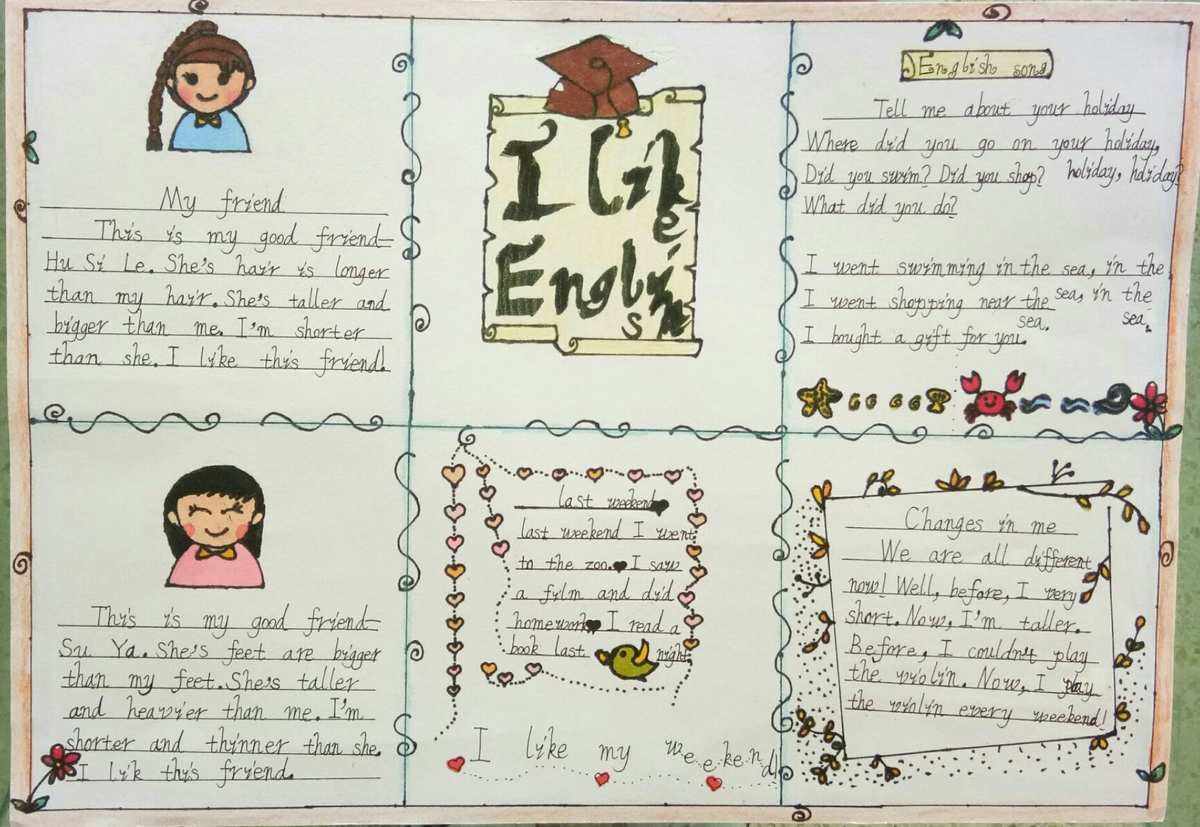 My friend
This is my good friend—
Hu Si Le. She's hair is longer
than my hair. She's taller and
bigger than me. I'm shorter
than she. I like this friend!
I Like
English
English song
Tell me about your holiday
Where did you go on your holiday,
Did you swim? Did you shop? holiday, holiday?
What did you do?
I went swimming in the sea, in the
I went shopping near the sea, in the
sea. sea.
I bought a gift for you.
This is my good friend—
Su Ya. She's feet are bigger
than my feet. She's taller
and heavier than me. I'm
shorter and thinner than she.
I lik this friend.
last weekend
last weekend I went
to the zoo. I saw
a film and did
homework I read a
book last night
I like my weekend!
Changes in me
We are all different
now! Well, before, I very
short. Now, I'm taller.
Before, I couldn't play
the violin. Now, I play
the violin every weekend!